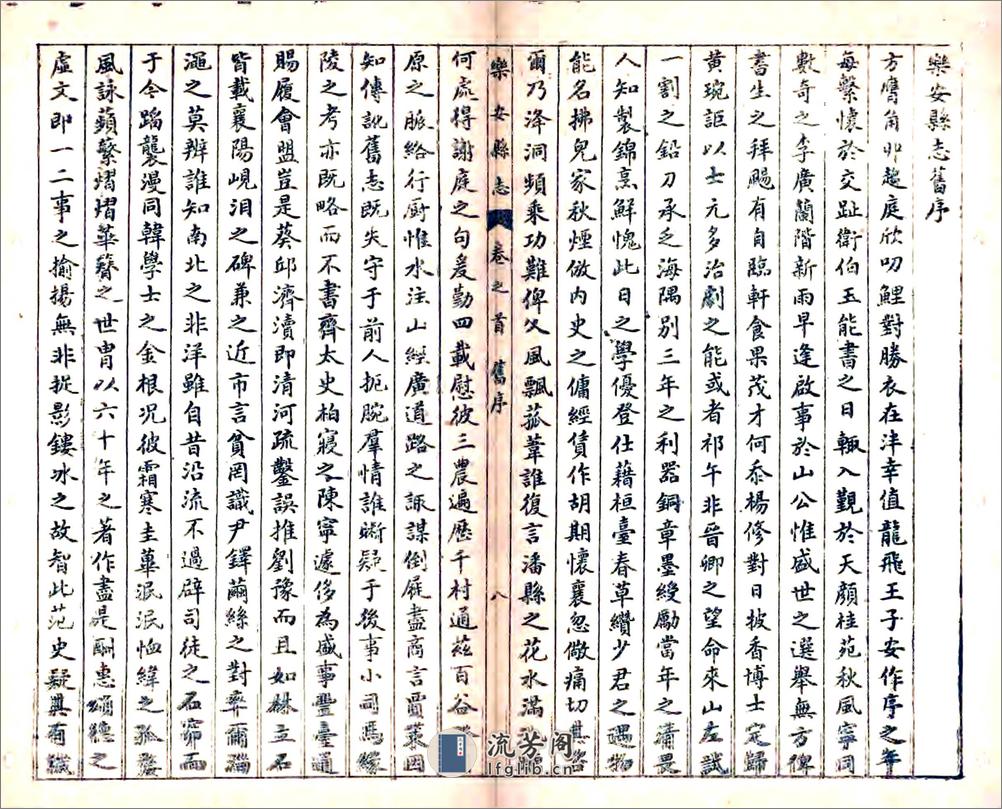 樂安縣志舊序
方膺角丱趨庭欣叨鯉對勝衣在泮幸值龍飛王子安作序之年
每繫懷於交趾衛伯玉能書之日輒入覲於天顏桂苑秋風寧同
數奇之李廣蘭階新雨早逢啟事於山公惟盛世之選舉無方俾
書生之拜賜有自臨軒食果茂才何忝楊修對日披香博士定歸
黃琬詎以士元多治劇之能或者祁午非晉卿之望命來山左試
一割之鉛刀承乏海隅別三年之利器銅章墨綬勵當年之清畏
人知製錦烹鮮愧此日之學優登仕藉桓臺春草纘少君之遇物
能名拂兒家秋煙倣內史之傭經賃作胡期懷襄忽儆痛切其咨
爾乃洚洞頻乘功難俾乂風飄菰葦誰復言潘縣之花水滿
樂安縣志 卷之首 舊序 八
何處得謝庭之句爰勤四載慰彼三農遍歷千村通茲百谷
原之脈絡行廚惟水注山經廣道路之諏謀倒屣盡商言賈策因
知傳訛舊志既失守于前人扼腕羣情誰斷疑于後事小司馬緣
陵之考亦既略而不書齊太史柏寢之陳寧遽侈為盛事豐臺道
賜履會盟豈是葵邱濟瀆即清河疏鑿誤推劉豫而且如林立石
皆載襄陽峴泪之碑兼之近市言貧罔識尹鐸繭絲之對彝爾淄
澠之莫辨誰知南北之非洋雖自昔沿流不過辟司徒之石窌而
于今蹈襲漫同韓學士之金根况彼霜寒圭蓽泯泯恤緯之孤嫠
風詠蘋蘩熠熠華簪之世胄以六十年之著作盡是酬惠頌德之
虛文即一二事之揄揚無非捉影鏤冰之故智此范史疑其有